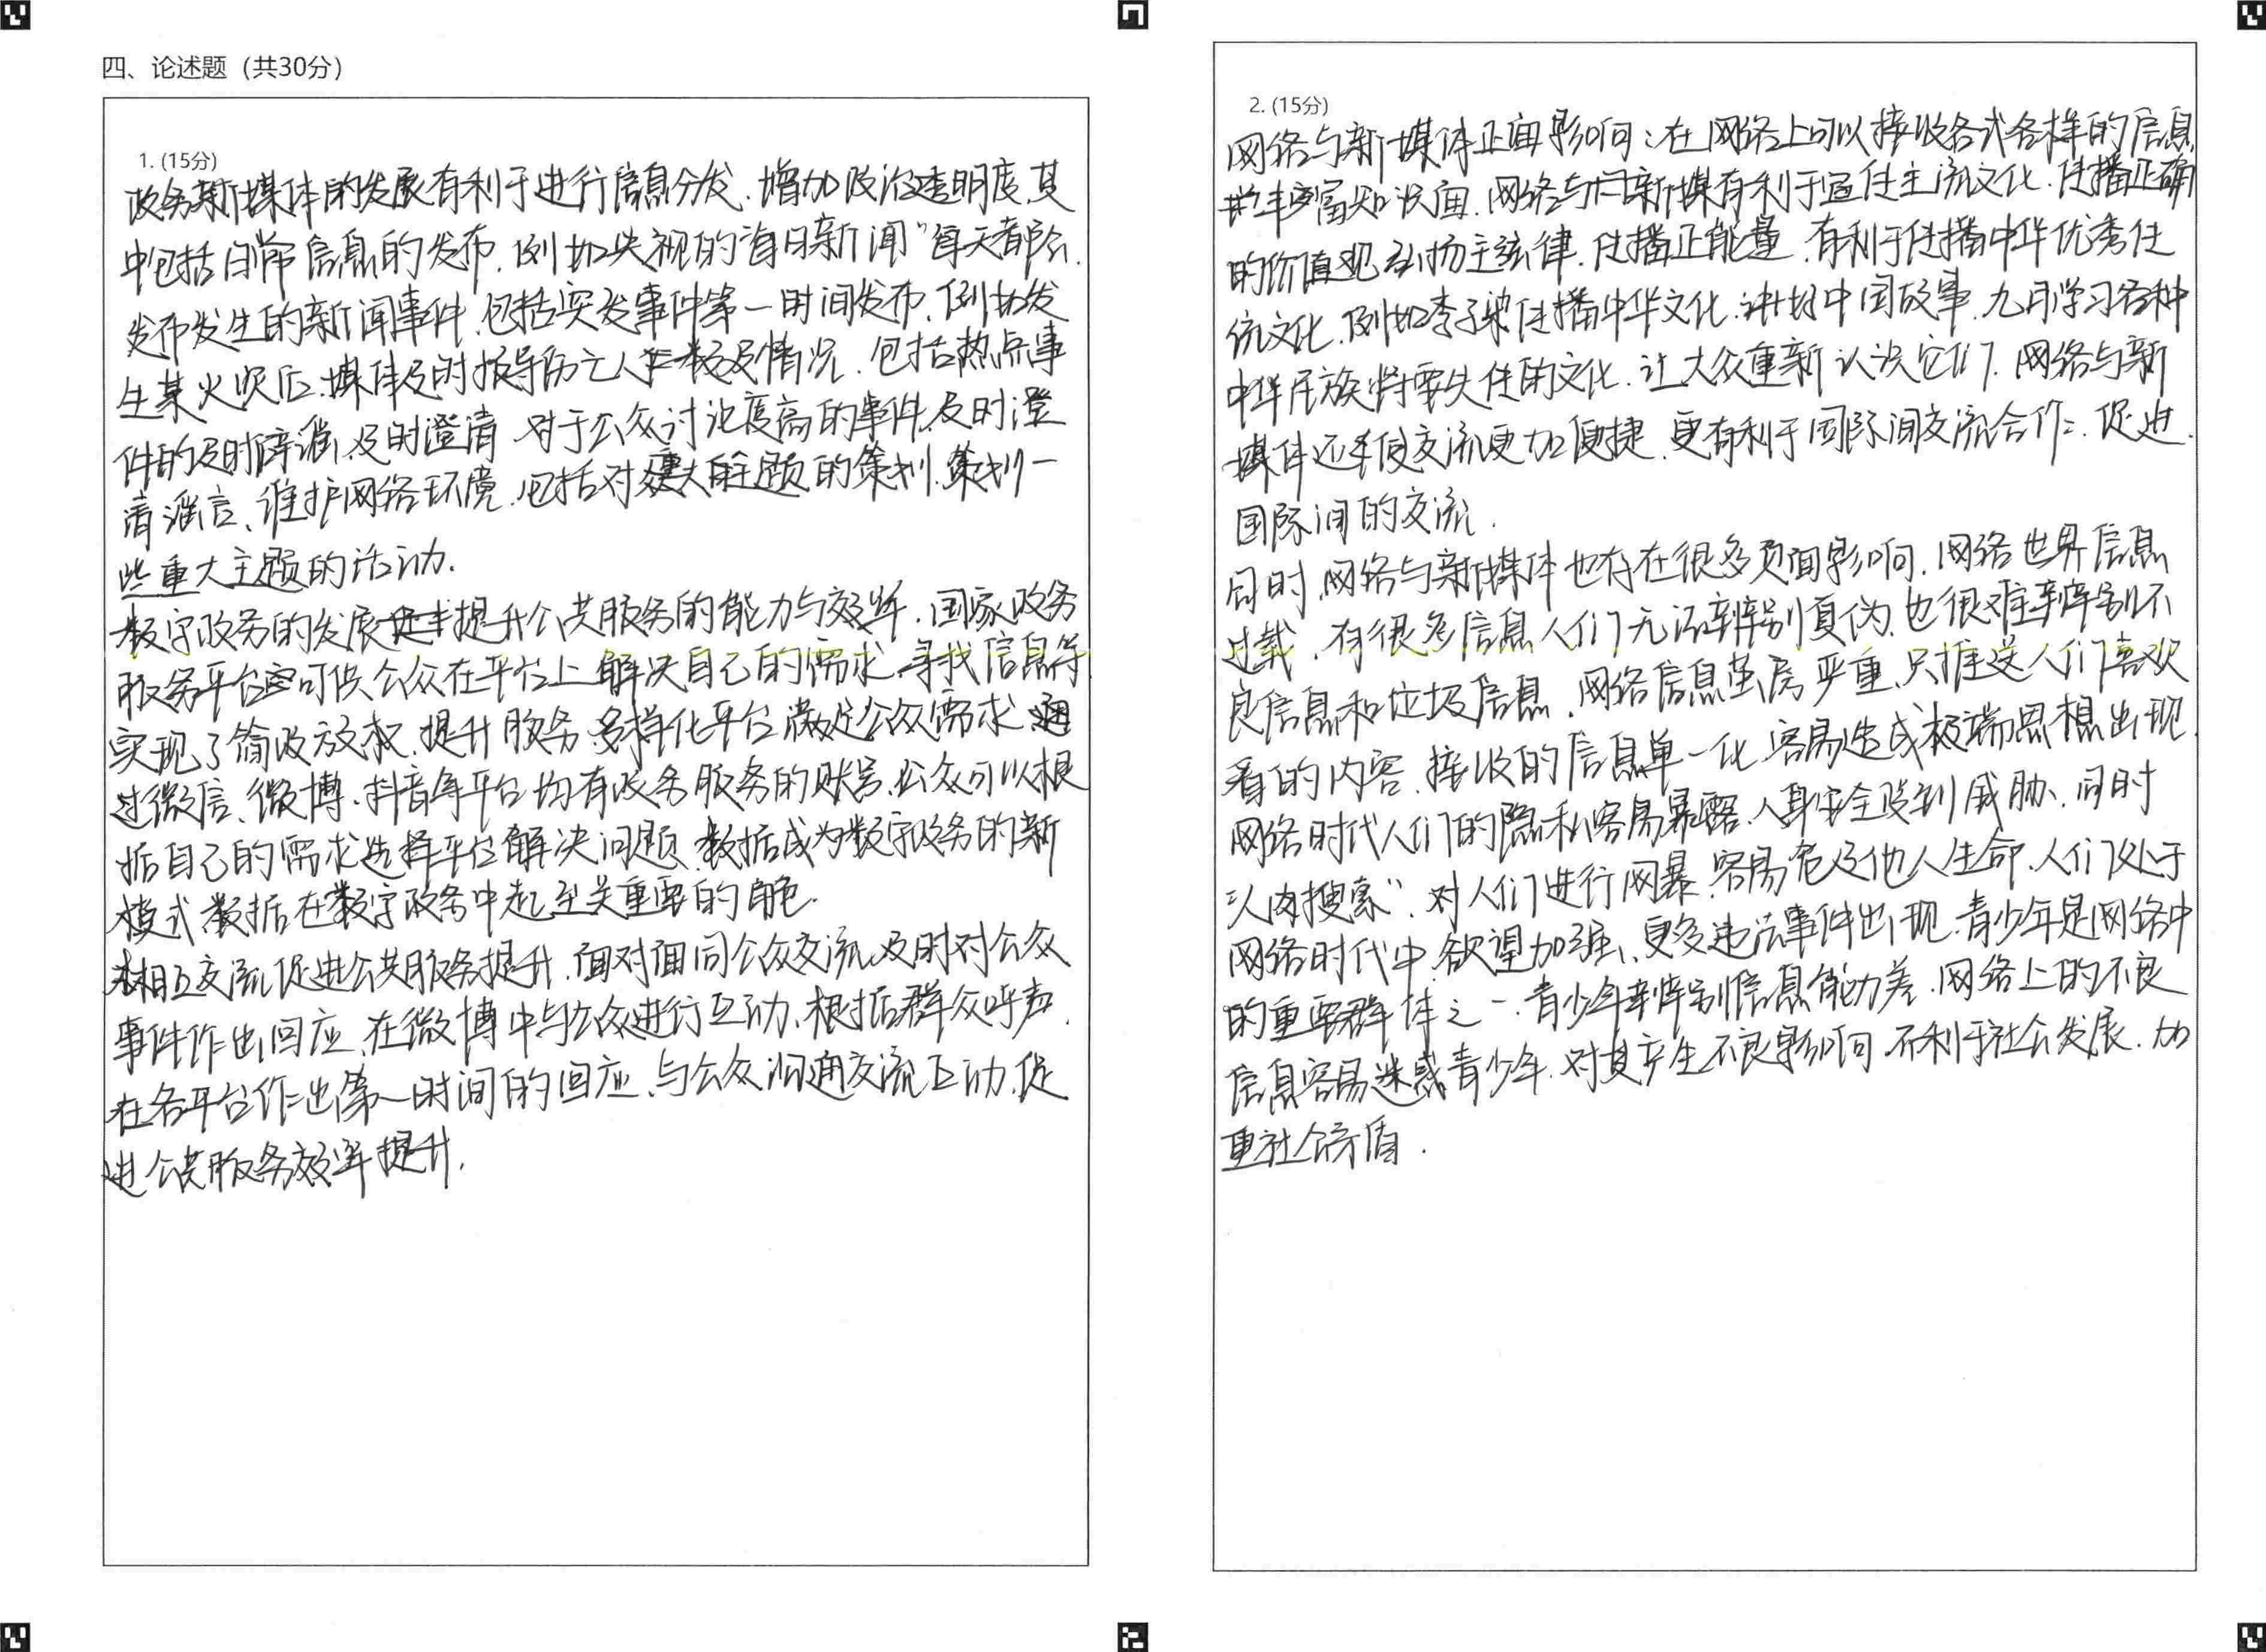 四、论述题（共30分）
1. (15分)
政务新媒体的发展有利于进行信息分发、增加政治透明度，其
中包括日常信息的发布，例如央视的“每日新闻”每天都会
发布发生的新闻事件，包括突发事件第一时间发布，例如发
生某火灾后，媒体及时报导伤亡人数及情况，包括热点事
件的及时辟谣，及时澄清，对于公众讨论度高的事件，及时澄
清谣言、维护网络环境，包括对重大主题的策划，策划一
些重大主题的活动.
数字政务的发展提升公共服务的能力与效率，国家政务
服务平台可供公众在平台上解决自己的需求，寻找信息等
实现了简政放权，提升服务，多样化平台满足公众需求，通
过微信、微博、抖音等平台均有政务服务的账号，公众可以根
据自己的需求选择平台解决问题，数据成为数字政务的新
模式，数据在数字政务中起至关重要的角色.
相互交流促进公共服务提升，面对面同公众交流，及时对公众
事件作出回应，在微博中与公众进行互动、根据群众呼声，
在各平台作出第一时间的回应、与公众沟通交流互动，促
进公共服务效率提升.
2. (15分)
网络与新媒体正面影响：在网络上可以接收各式各样的信息，
丰富知识面，网络与新媒有利于宣传主流文化，传播正确
的价值观，弘扬主弦律，传播正能量，有利于传播中华优秀传
统文化，例如李子柒传播中华文化，讲好中国故事，九月学习各种
中华民族将要失传的文化，让大众重新认识它们，网络与新
媒体还使交流更加便捷，更有利于国际间交流合作，促进
国际间的交流.
同时，网络与新媒体也存在很多负面影响，网络世界信息
过载，有很多信息人们无法辨别真伪，也很难辨别不
良信息和垃圾信息，网络信息茧房严重，只推送人们喜欢
看的内容，接收的信息单一化，容易造成极端思想出现，
网络时代人们的隐私容易暴露，人身安全受到威胁，同时
“人肉搜索”，对人们进行网暴，容易危及他人生命，人们处于
网络时代中，欲望加强，更多违法事件出现，青少年是网络中
的重要群体之一，青少年辨别信息能力差，网络上的不良
信息容易迷惑青少年，对其产生不良影响，不利于社会发展，加
重社会矛盾.